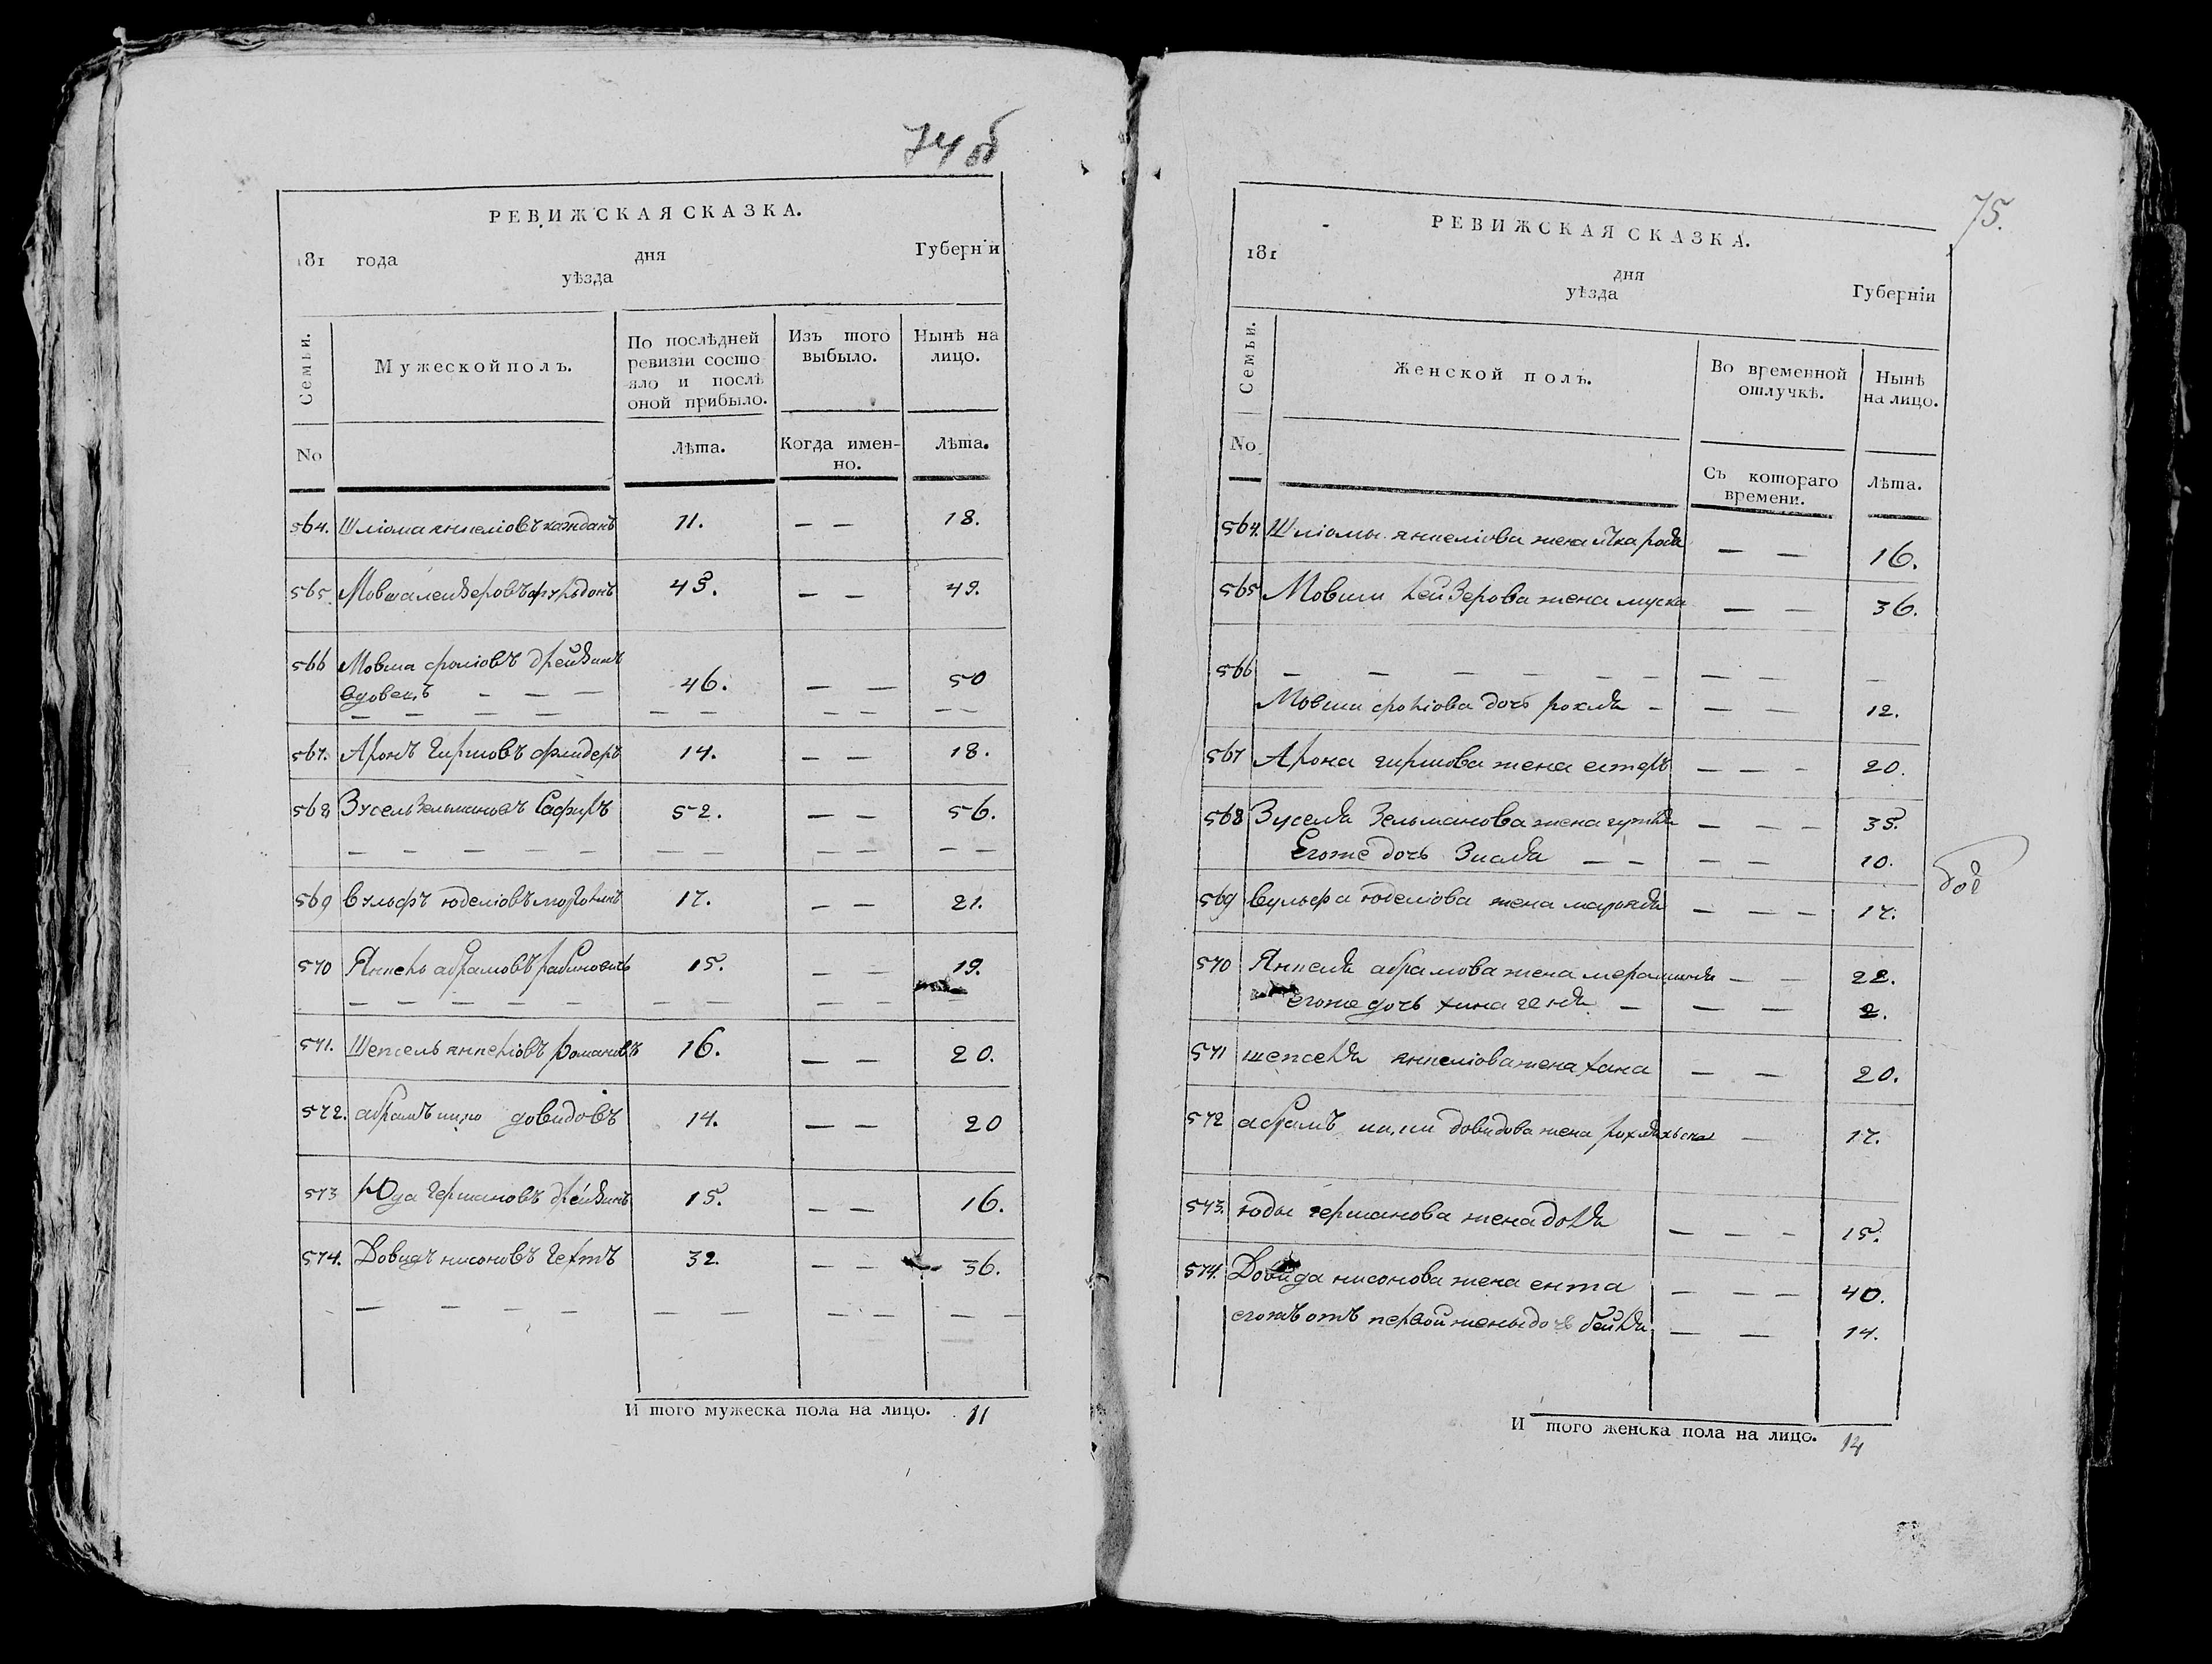 74 об
РЕВИЖСКАЯ СКАЗКА.
181 года дня Губерніи
уѣзда
Семьи.
Мужеской полъ.
По послѣдней ревизіи состояло и послѣ оной прибыло.
Изъ того выбыло.
Нынѣ на лицо.
No
Лѣта.
Когда именно.
Лѣта.
564. Шліома янкеліовъ каждань 11. — — 18.
565. Мовша лейзеровъ — — 49.
566 Мовша фроліовъ дрейзинъ
вдовецъ — — — 46. — — 50
567. Аронъ гиршовъ флидеръ 14. — — 18.
568 Зусель зельмановъ Сафиръ 52. — — 56.
569 вульфъ юделіовъ 17. — — 21.
570 Янкель абрамовъ рабиновичь 15. — — 19.
571. Шепсель янкеліовъ романовъ 16. — — 20.
572. абрамъ ицко довидовъ 14. — — 20
573 Юда германовъ дрейзинъ 15. — — 16.
574. Довидъ нисоновъ гехтъ 32. — — 36.
И того мужеска пола на лицо. 11
75.
РЕВИЖСКАЯ СКАЗКА.
181 дня
уѣзда Губерніи
Семьи.
Женской полъ.
Во временной отлучкѣ.
Нынѣ на лицо.
No
Съ котораго времени.
Лѣта.
564. Шліомы янкеліова жена — — 16.
565 Мовши лейзерова жена муска — — 36.
566 — — — — — — — — —
Мовши фроліова дочь рохля — — — 12.
567 Арона гиршова жена естеръ — — - 20.
568 Зуселя Зельманова жена — — — 35.
Егоже дочь Зисля — — — — 10.
569 вульфа юделіова жена — — — 17.
570 Янкеля абрамова жена — — 22.
егоже дочь хина геня — — — 2.
571 шепселя янкеліова жена хана — — 20.
572 абрамъ ицки довидова жена — 17.
573. юды германова жена доля — — - 15.
574. Довида нисонова жена ента — — — 40.
егожъ отъ первой жены дочь бейля — — 14.
И того женска пола на лицо. 14